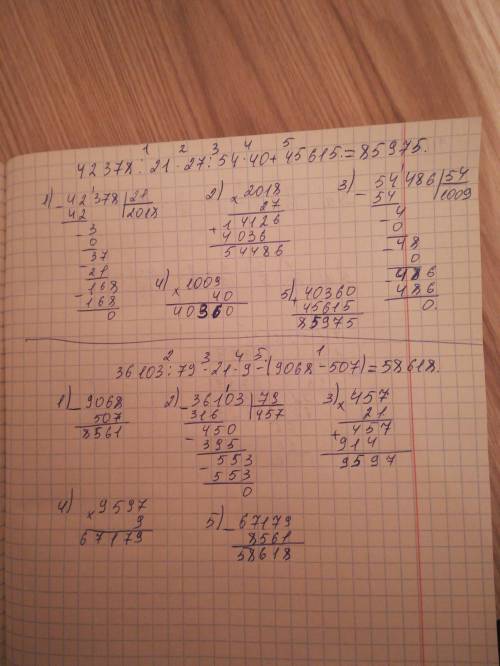 1 2 3 4 5
42378 : 21 · 27 : 54 · 40 + 45615 = 85975.
1) - 42'378 | 21
42 | 2018
- 3
0
- 37
21
- 168
168
0
2) × 2018
27
+ 14126
4036
54486
3) - 54'486 | 54
54 | 1009
- 4
0
- 48
0
- 486
486
0.
4) × 1009
40
40360
5) + 40360
45615
85975
2 3 4 5 1
36103 : 79 · 21 · 9 - (9068 - 507) = 58618.
1) - 9068
507
8561
2) - 36103 | 79
316 | 457
- 450
395
- 553
553
0
3) × 457
21
+ 457
914
9597
4) × 9597
9
67179
5) - 67179
8561
58618